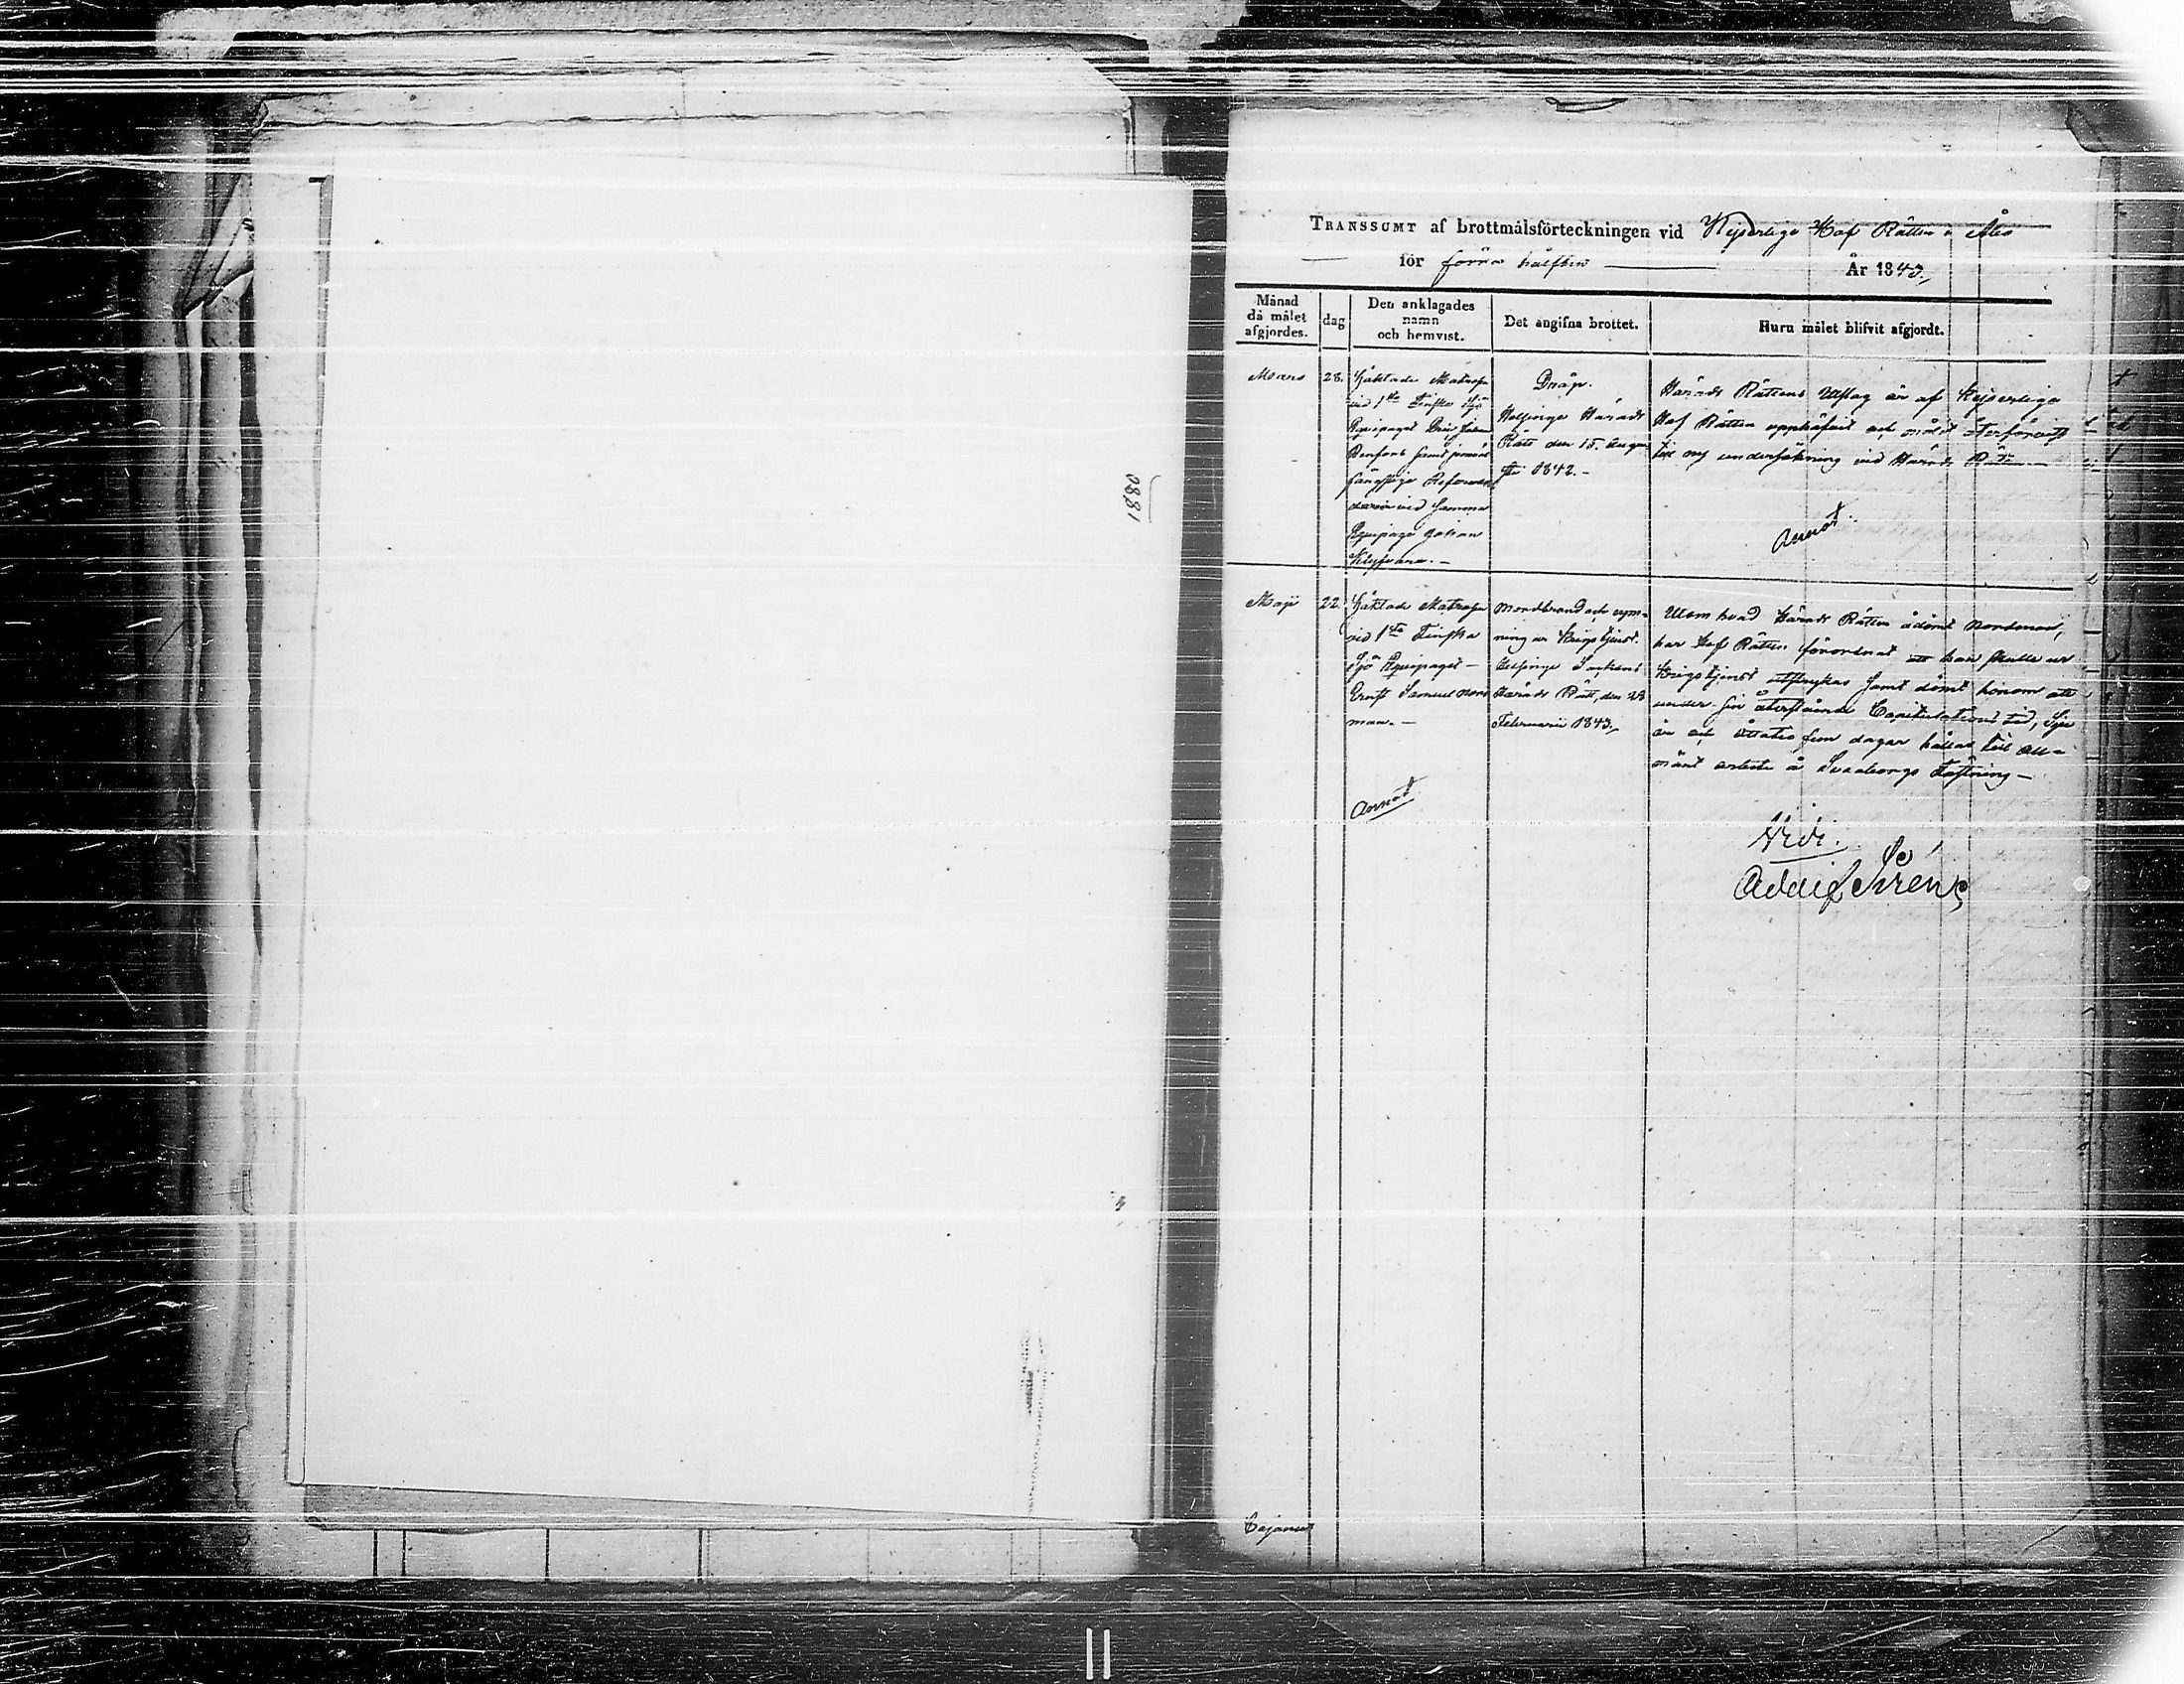 1880
TRANSSUMT af brottmålsförteckningen vid Kejserliga Hof Rätten i Åbo
för förra hälften År 1843.
Månad då målet afgjordes.
dag
Den anklagades namn och hemvist.
Det angifna brottet.
Huru målet blifvit afgjordt.
Mars
28.
Häktade Matrosen
vid 1sta Finska Sjö
Equipaget
Renfors samt
vid samma
Equipage Johan
Klyfvare.-
Dråp.
Helsinge Härads
Rätt den 15. Augu-
sti 1842.-
Härads Rättens Utslag är af Kejserliga
Hof Rätten upphäfvit och målet återförvist
till ny undersökning vid Härads Rätten.-
Annot.
Maji
22.
Häktade Matrosen
vid 1sta Finska
Sjö Equipaget -
Ernst Samuel Nord-
man.-
Mordbrand och rym-
ning ur Krigstjenst.
Helsinge Sockens
Härads Rätt, den 28
Februarii 1843.
Utom hvad Härads Rätten ådömt Nordman,
har Hof Rätten förordnat att han skulle ur
Krigstjenst utstrykas samt dömt honom att
under sin återstående Capitulations tid, Sju
år och åttatio fem dagar hållas till all-
mänt arbete å Sveaborgs Fästning -
Annot.
Vidi.
Adolf Sirén
Cajanus